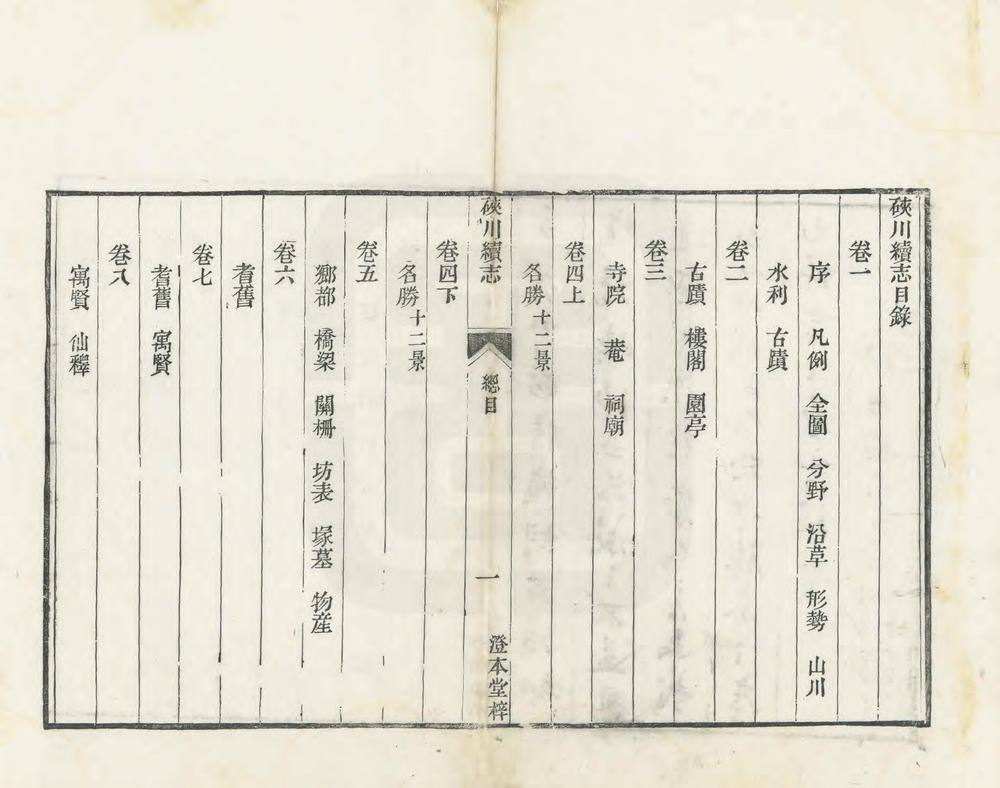 硤川續志目錄
卷一
序　凡例　全圖　分野　沿革　形勢　山川
水利　古蹟
卷二
古蹟　樓閣　園亭
卷三
寺院　菴　祠廟
卷四上
名勝十二景
硤川續志　總目　一　澄本堂梓
卷四下
名勝十二景
卷五
鄉都　橋梁　關柵　坊表　塚墓　物産
卷六
耆舊
卷七
耆舊　寓賢
卷八
寓賢　仙釋